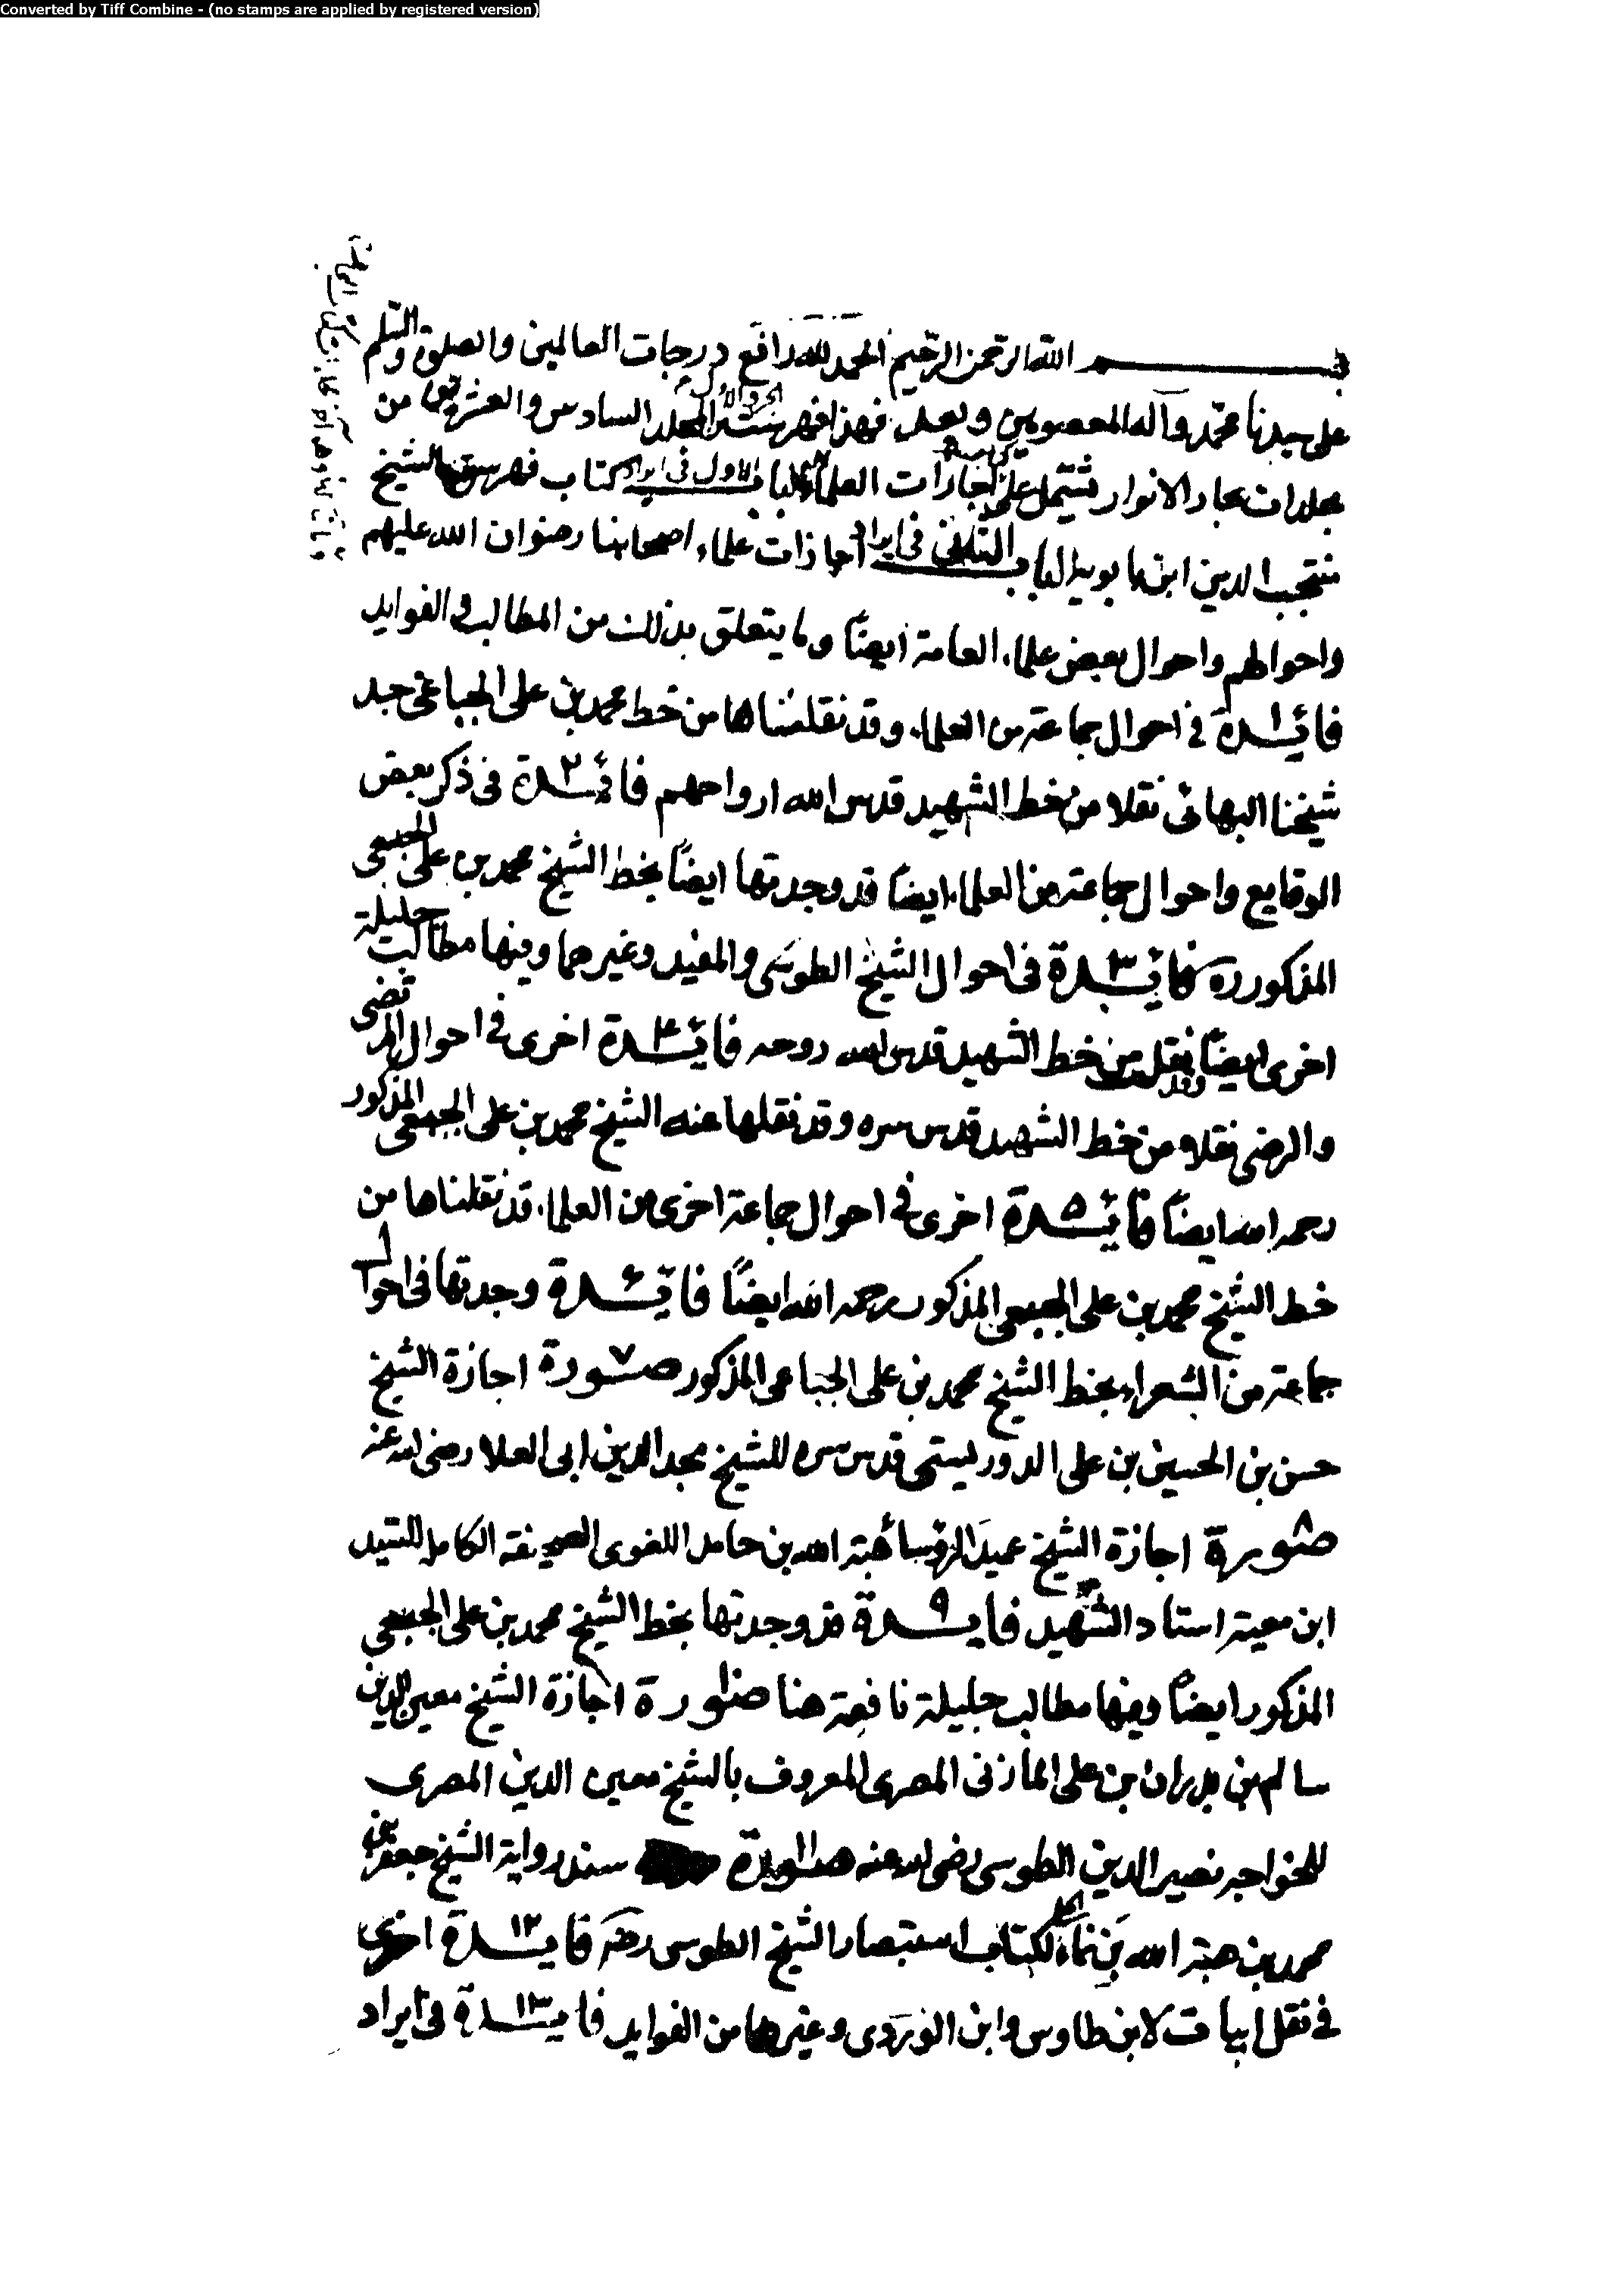 Converted by Tiff Combine - (no stamps are applied by registered version)
بسم الله الرحمن الرحيم الحمد لله رافع درجات العالمين والصلوة والسلم
على سيدنا محمد وآله المعصومين وبعد فهذا فهرست الجزو الاول من المجلد السادس والعشرين من
مجلدات بحار الانوار تشتمل على اجازات العلماء الباب الاول فى ايراد كتاب فهرست الشيخ
منتجب الدين ابن بابويه الباب الثانى فى ايراد اجازات علماء اصحابنا رضوان الله عليهم
واحوالهم واحوال بعض علماء العامة ايضا وما يتعلق بذلك من المطالب والفوايد
فائدة ١ فى احوال جماعة من العلماء وقد نقلناها من خط محمد بن على الجباعى جد
شيخنا البهائى نقلا من خط الشهيد قدس الله ارواحهم فائدة ٢ فى ذكر بعض
الوقايع واحوال جماعة من العلماء ايضا قد وجدتها ايضا بخط الشيخ محمد بن على الجبعى
المذكور ره فائدة ٣ فى احوال الشيخ الطوسى والمفيد وغيرهما وفيها مطالب جليلة
اخرى ايضا وقد نقل من خط الشهيد قدس الله روحه فائدة ٤ اخرى فى احوال المرتضى
والرضى نقلا من خط الشهيد قدس سره وقد نقلها عنه الشيخ محمد بن على الجبعى المذكور
رحمه الله ايضا فائدة ٥ اخرى فى احوال جماعة اخرى من العلماء قد نقلناها من
خط الشيخ محمد بن على الجبعى المذكور رحمه الله ايضا فائدة ٦ وجدتها فى احوال
جماعة من الشعراء بخط الشيخ محمد بن على الجباعى المذكور صورة ٧ اجازة الشيخ
حسن بن الحسين بن على الدوريستى قدس سره للشيخ مجد الدين ابى العلا رضى الله عنه
صورة ٨ اجازة الشيخ عميد الرؤسا هبة الله بن حامد اللغوى الصحيفة الكامل للسيد
ابن معية استاد الشهيد فايدة ٩ قد وجدتها بخط الشيخ محمد بن على الجبعى
المذكور ايضا وفيها مطالب جليلة نافعة هنا صورة ١٠ اجازة الشيخ معين الدين
سالم بن بدران بن على المازنى المصرى المعروف بالشيخ معين الدين المصرى
للخواجه نصير الدين الطوسى رضى الله عنه صورة ١١ سند رواية الشيخ جعفر بن
محمد بن هبة الله بن نما الحلى لكتاب استبصار الشيخ الطوسى رحمه فايدة ١٢ اخرى
فى نقل ابيات لابن طاوس وابن الوردى وغيرها من الفوايد فايدة ١٣ فى ايراد